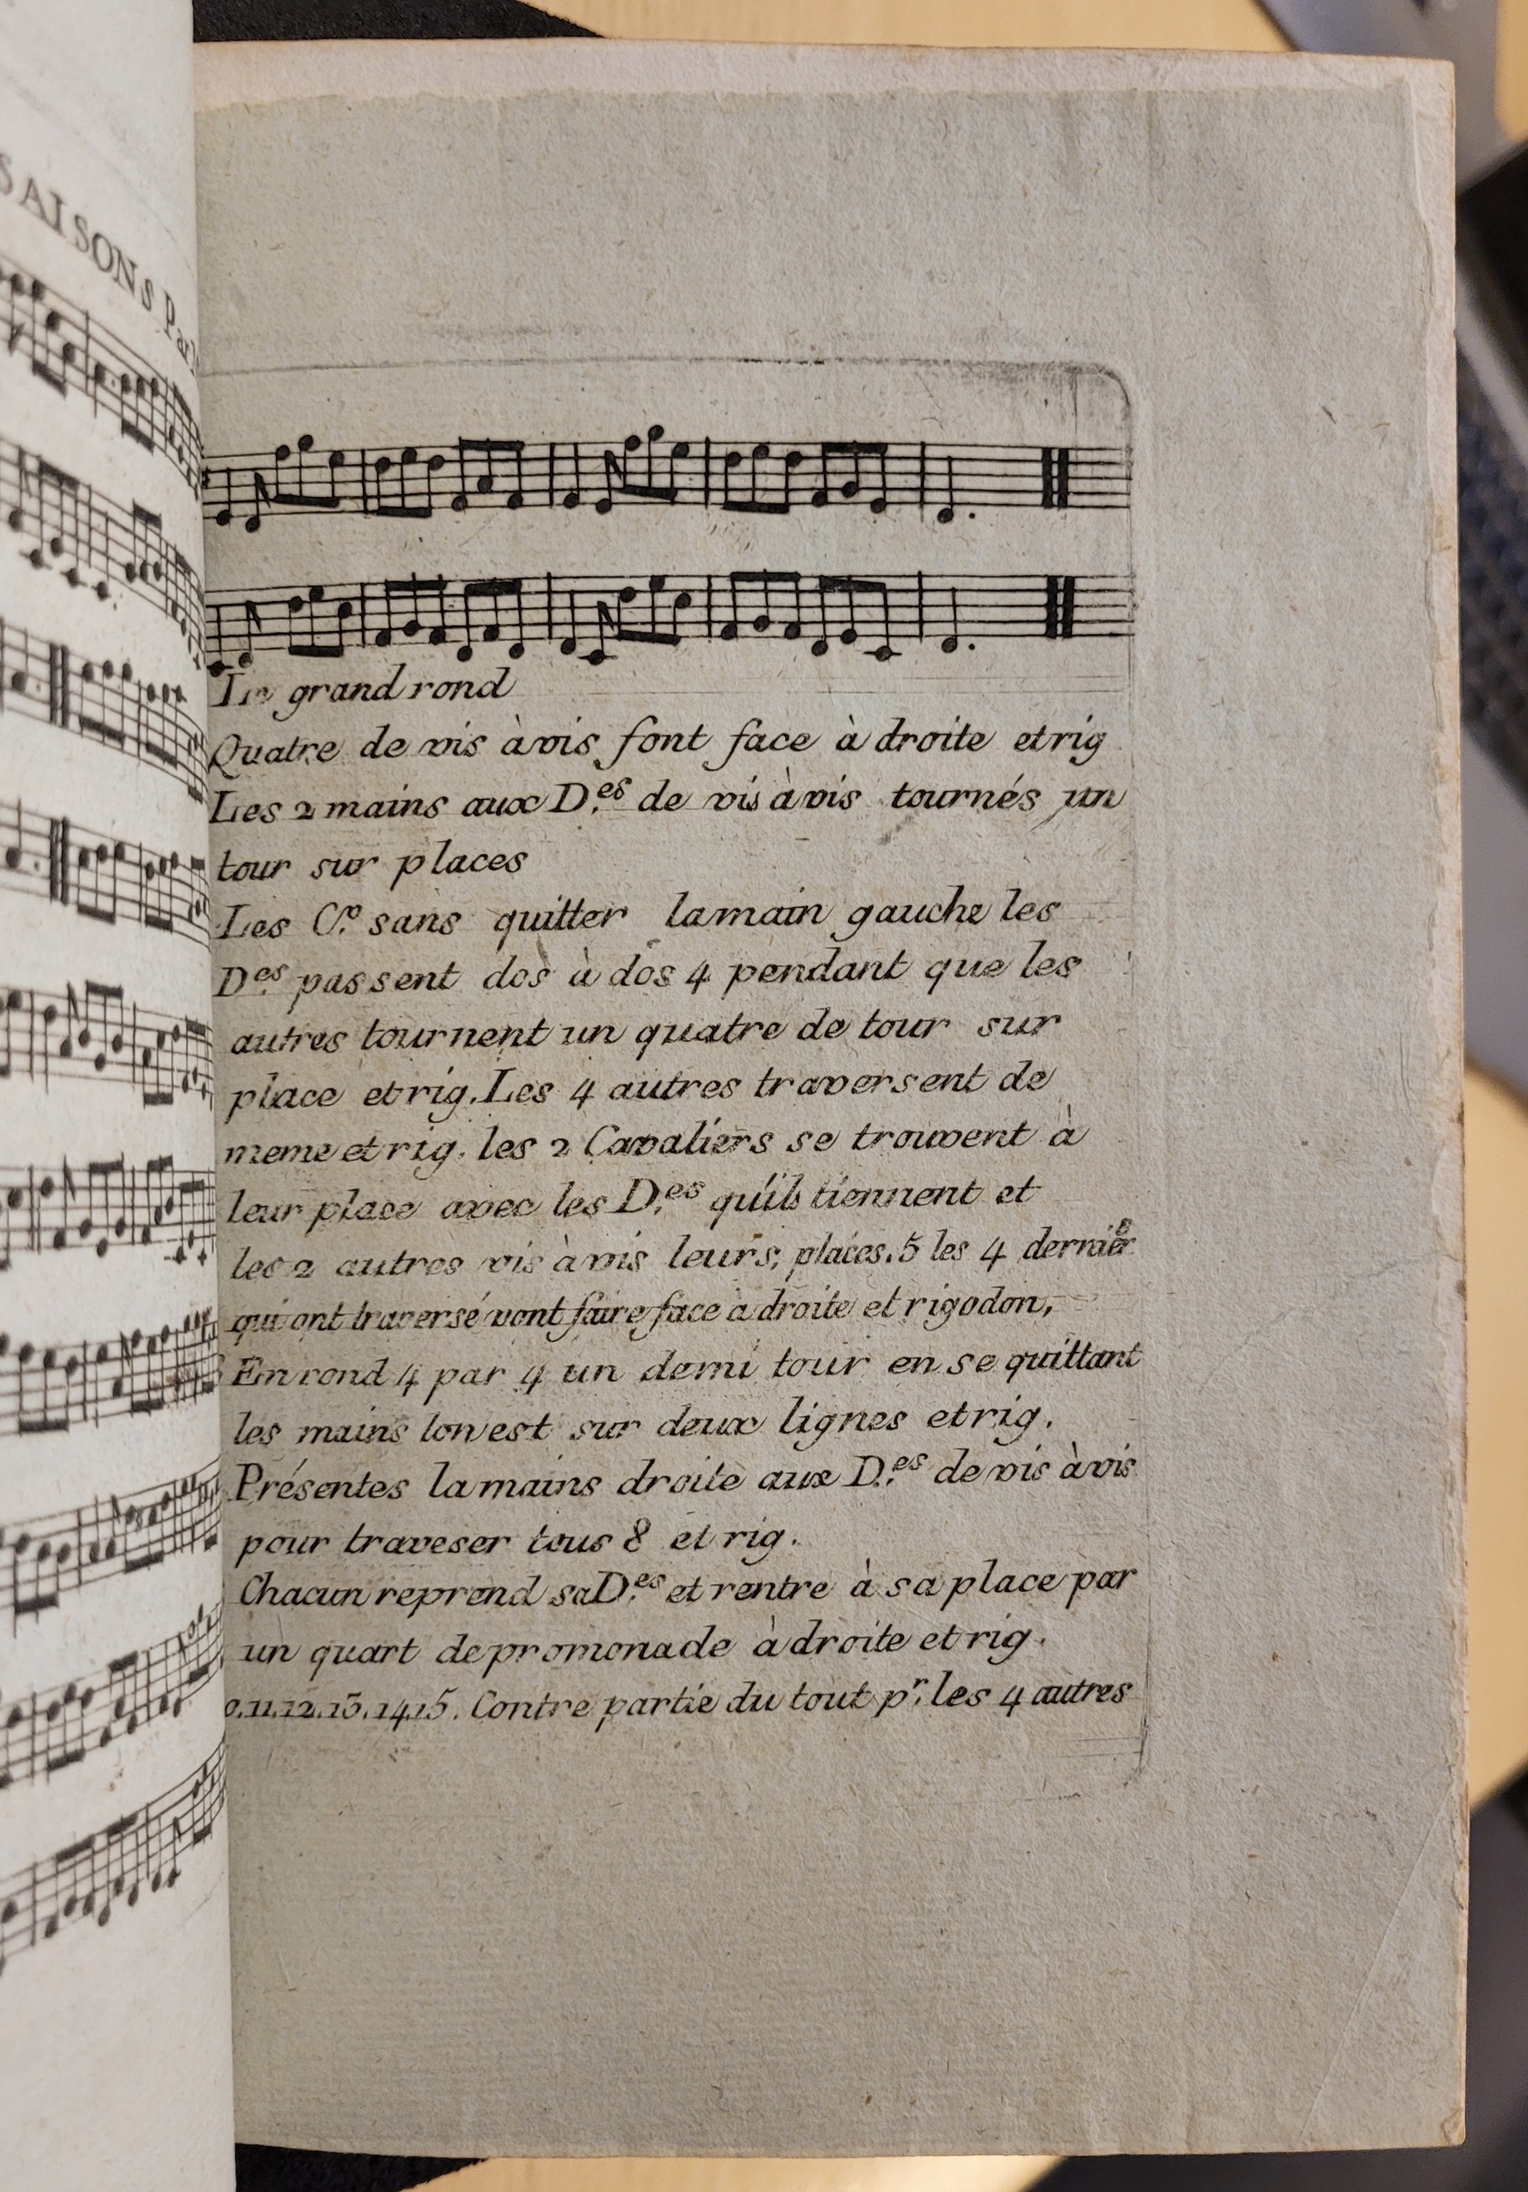 SAISONS Par
Le grand rond
Quatre de vis à vis font face à droite et rig
Les 2 mains aux D.es de vis à vis tournés un
tour sur places
Les C.rs sans quitter la main gauche les
D.es passent dos à dos 4 pendant que les
autres tournent un quatre de tour sur
place et rig. Les 4 autres traversent de
meme et rig. les 2 Cavaliers se trouvent à
leur place avec les D.es qu'ils tiennent et
les 2 autres vis à vis leurs places. 5 les 4 dernier.s
qui ont traversé vont faire face a droite et rigodon,
En rond 4 par 4 un demi tour en se quittant
les mains lon est sur deux lignes et rig.
Présentes la mains droite aux D.es de vis à vis
pour traveser tous 8 et rig.
Chacun reprend sa D.es et rentre à sa place par
un quart de promonade à droite et rig.
0.11.12.13.14.15. Contre partie du tout p.r les 4 autres